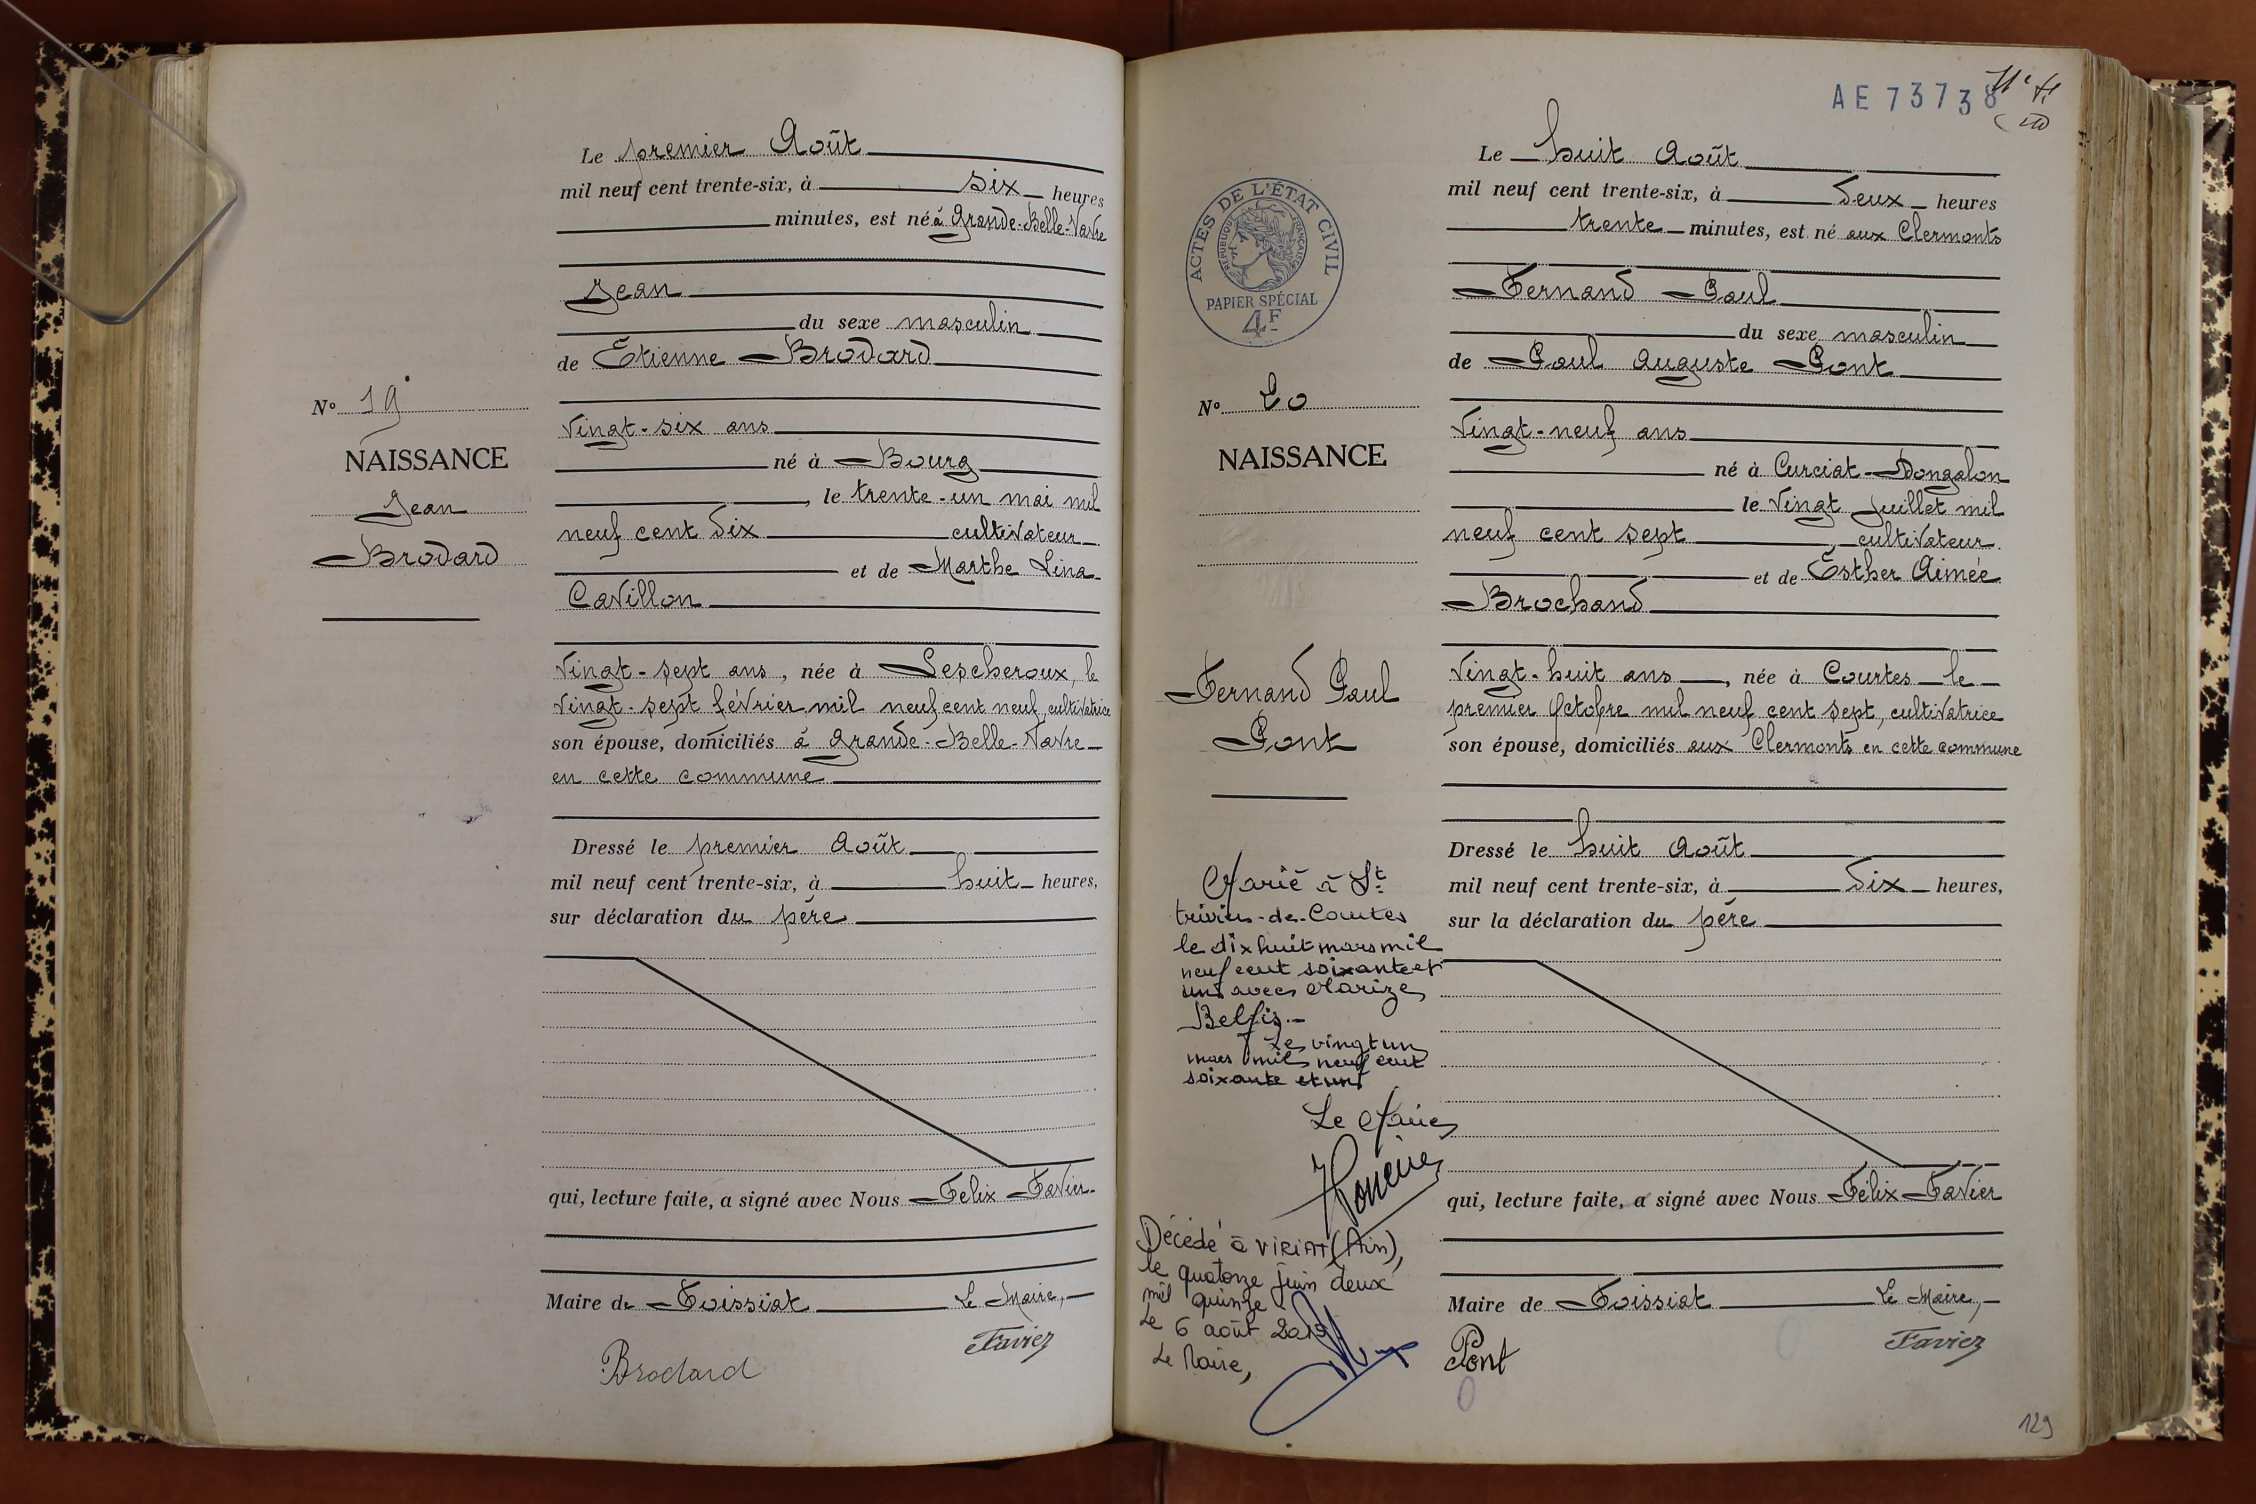 Le premier Août
mil neuf cent trente-six, à six heures
minutes, est né à Grande-Belle-Vavre
Jean
du sexe masculin
de Etienne Brodard
Vingt-six ans
né à Bourg
, le trente-un mai mil
neuf cent dix cultivateur
et de Marthe Lina
Cavillon
Vingt-sept ans, née à Lescheroux, le
Vingt-sept février mil neuf cent neuf, cultivatrice
son épouse, domiciliés à Grande-Belle-Vavre
en cette commune
Dressé le premier Août
mil neuf cent trente-six, à huit heures,
sur déclaration du père
qui, lecture faite, a signé avec Nous Félix Favier
Maire de Foissiat Le Maire,
Favier
Brodard
N° 19
NAISSANCE
Jean
Brodard
AE 73738
Le huit Août
mil neuf cent trente-six, à deux heures
trente minutes, est né aux Clermonts
Fernand Paul
du sexe masculin
de Paul Auguste Pont
Vingt-neuf ans
né à Curciat-Dongalon
le Vingt Juillet mil
neuf cent sept, cultivateur
et de Esther Aimée
Brochand
Vingt-huit ans, née à Courtes le
premier Octobre mil neuf cent sept, cultivatrice
son épouse, domiciliés aux Clermonts en cette commune
Dressé le huit Août
mil neuf cent trente-six, à dix heures,
sur la déclaration du père
qui, lecture faite, a signé avec Nous Félix Favier
Maire de Foissiat Le Maire,
Favier
Pont
ACTES DE L'ÉTAT CIVIL
RÉPUBLIQUE FRANÇAISE
PAPIER SPÉCIAL
4F
N° 20
NAISSANCE
Fernand Paul
Pont
Marié à St
trivier-de-Courtes
le dix huit mars mil
neuf cent soixante et
un avec Marize
Belfis.-
Le vingt un
mars mil neuf cent
soixante et un
Le Maire
Décédé à VIRIAT (Ain),
le quatorze juin deux
mil quinze
Le 6 août 2015
Le Maire,
129